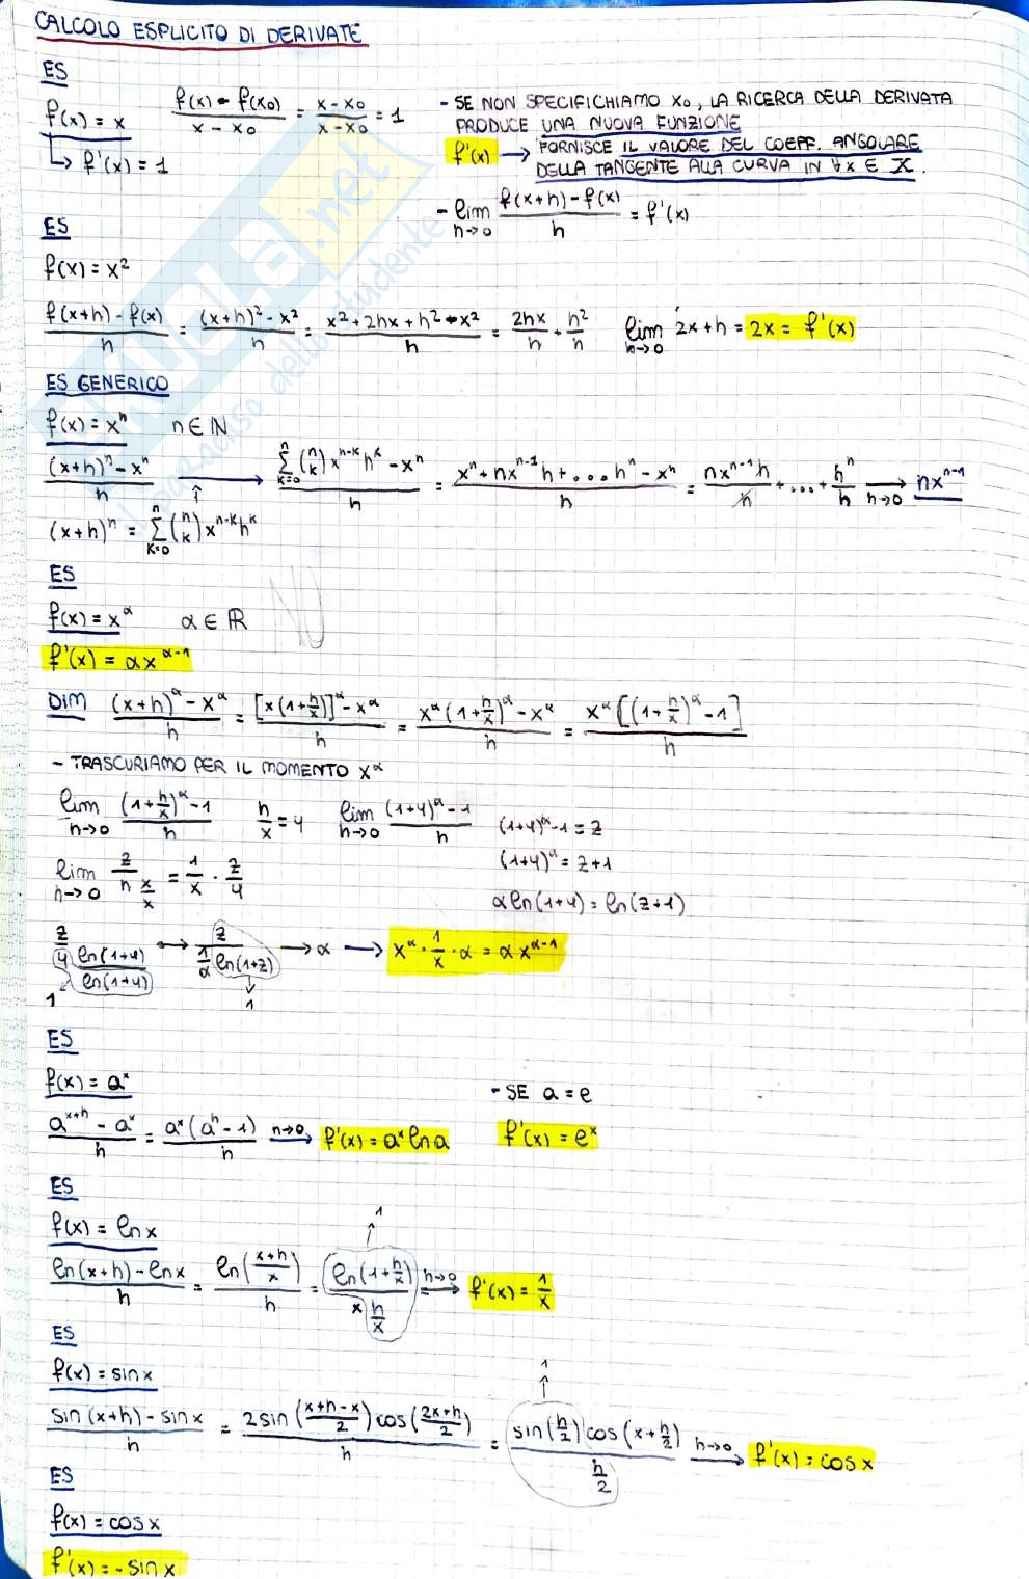 CALCOLO ESPLICITO DI DERIVATE
ES
f(x) = x    (f(x) - f(x₀))/(x - x₀) = (x - x₀)/(x - x₀) = 1
↳ f'(x) = 1
- SE NON SPECIFICHIAMO x₀, LA RICERCA DELLA DERIVATA
PRODUCE UNA NUOVA FUNZIONE
f'(x) → FORNISCE IL VALORE DEL COEFF. ANGOLARE
DELLA TANGENTE ALLA CURVA IN ∀x ∈ X.
- lim h→0 (f(x+h) - f(x))/h = f'(x)
ES
f(x) = x²
(f(x+h) - f(x))/h = ((x+h)² - x²)/h = (x² + 2hx + h² - x²)/h = 2hx/h + h²/h    lim h→0 2x+h = 2x = f'(x)
ES GENERICO
f(x) = xⁿ    n ∈ ℕ
((x+h)ⁿ - xⁿ)/h → (∑ₖ₌₀ⁿ (n k) xⁿ⁻ᵏ hᵏ - xⁿ)/h = (xⁿ + nxⁿ⁻¹h + .... hⁿ - xⁿ)/h = nxⁿ⁻¹h/h + ... + hⁿ/h → h→0 nxⁿ⁻¹
↑
(x+h)ⁿ = ∑ₖ₌₀ⁿ (n k) xⁿ⁻ᵏ hᵏ
ES
f(x) = x^α    α ∈ ℝ
f'(x) = αx^(α-1)
DIM ((x+h)^α - x^α)/h = ([x(1+h/x)]^α - x^α)/h = (x^α(1+h/x)^α - x^α)/h = x^α[(1+h/x)^α - 1]/h
- TRASCURIAMO PER IL MOMENTO x^α
lim h→0 ((1+h/x)^α - 1)/h    h/x = y    lim h→0 ((1+y)^α - 1)/h    (1+y)^α - 1 = z
(1+y)^α = z+1
lim h→0 z/(h x/x) = 1/x · z/y
α ln(1+y) = ln(z+1)
z/y ln(1+y)/ln(1+y) ↔ z/(1/α ln(1+z)) → α → x^α · 1/x · α = αx^(α-1)
1    ↓
1
ES
f(x) = aˣ    - SE a = e
(aˣ⁺ʰ - aˣ)/h = aˣ(aʰ - 1)/h h→0 → f'(x) = aˣ ln a    f'(x) = eˣ
ES
1
↑
f(x) = ln x
(ln(x+h) - ln x)/h = ln((x+h)/x)/h = ln(1+h/x)/(x h/x) h→0 → f'(x) = 1/x
ES
f(x) = sin x
1
↑
(sin(x+h) - sin x)/h = 2 sin((x+h-x)/2) cos((2x+h)/2)/h = sin(h/2) cos(x+h/2)/(h/2) h→0 → f'(x) = cos x
ES
f(x) = cos x
f'(x) = - sin x